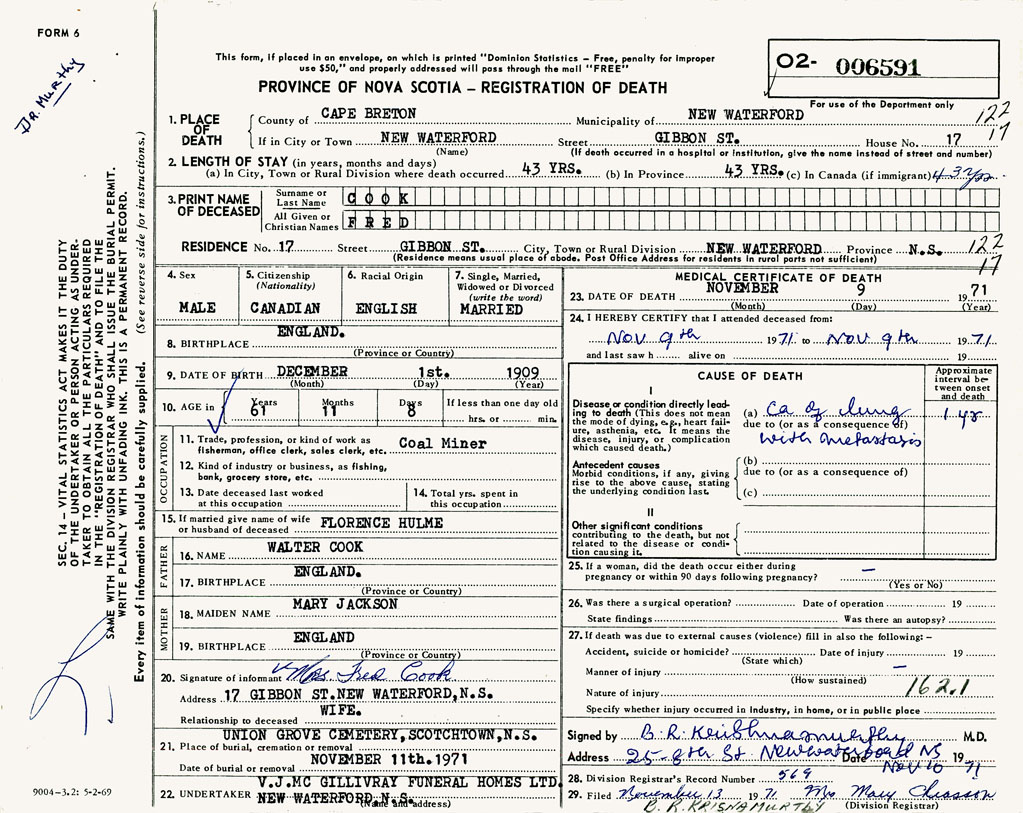 FORM 6
DR. MURTHY
This form, if placed in an envelope, on which is printed "Dominion Statistics – Free, penalty for improper
use $50," and properly addressed will pass through the mail "FREE"
O2- 006591
PROVINCE OF NOVA SCOTIA – REGISTRATION OF DEATH
For use of the Department only
1. PLACE OF DEATH
County of CAPE BRETON Municipality of NEW WATERFORD 122
If in City or Town NEW WATERFORD Street GIBBON ST. House No. 17 17
(Name) (If death occurred in a hospital or institution, give the name instead of street and number)
2. LENGTH OF STAY (in years, months and days)
(a) In City, Town or Rural Division where death occurred 43 YRS. (b) In Province 43 YRS. (c) In Canada (if immigrant) 43 yrs
3. PRINT NAME OF DECEASED
Surname or Last Name COOK
All Given or Christian Names FRED
RESIDENCE No. 17 Street GIBBON ST. City, Town or Rural Division NEW WATERFORD Province N.S. 122
(Residence means usual place of abode. Post Office Address for residents in rural parts not sufficient) 17
4. Sex
MALE
5. Citizenship
(Nationality)
CANADIAN
6. Racial Origin
ENGLISH
7. Single, Married,
Widowed or Divorced
(write the word)
MARRIED
8. BIRTHPLACE ENGLAND.
(Province or Country)
9. DATE OF BIRTH DECEMBER 1st. 1909
(Month) (Day) (Year)
10. AGE in Years 61 Months 11 Days 8 If less than one day old
hrs. or min.
OCCUPATION
11. Trade, profession, or kind of work as
fisherman, office clerk, sales clerk, etc. Coal Miner
12. Kind of industry or business, as fishing,
bank, grocery store, etc.
13. Date deceased last worked
at this occupation
14. Total yrs. spent in
this occupation
15. If married give name of wife
or husband of deceased FLORENCE HULME
FATHER
16. NAME WALTER COOK
17. BIRTHPLACE ENGLAND.
(Province or Country)
MOTHER
18. MAIDEN NAME MARY JACKSON
19. BIRTHPLACE ENGLAND
(Province or Country)
20. Signature of informant Mrs. Fred Cook
Address 17 GIBBON ST. NEW WATERFORD, N.S.
Relationship to deceased WIFE.
UNION GROVE CEMETERY, SCOTCHTOWN, N.S.
21. Place of burial, cremation or removal
Date of burial or removal NOVEMBER 11th. 1971
22. UNDERTAKER V.J.MC GILLIVRAY FUNERAL HOMES LTD.
NEW WATERFORD N.S.
(Name and address)
MEDICAL CERTIFICATE OF DEATH
23. DATE OF DEATH NOVEMBER 9 1971
(Month) (Day) (Year)
24. I HEREBY CERTIFY that I attended deceased from:
Nov 9th 1971 to Nov 9th 1971
and last saw h alive on 19
CAUSE OF DEATH
Approximate
interval be-
tween onset
and death
I
Disease or condition directly lead-
ing to death (This does not mean
the mode of dying, e.g., heart fail-
ure, asthenia, etc. It means the
disease, injury, or complication
which caused death.)
(a) Ca of lung 1 yr
due to (or as a consequence of)
with metastasis
Antecedent causes
Morbid conditions, if any, giving
rise to the above cause, stating
the underlying condition last.
(b)
due to (or as a consequence of)
(c)
II
Other significant conditions
contributing to the death, but not
related to the disease or condi-
tion causing it.
25. If a woman, did the death occur either during
pregnancy or within 90 days following pregnancy? –
(Yes or No)
26. Was there a surgical operation? Date of operation 19
State findings Was there an autopsy?
27. If death was due to external causes (violence) fill in also the following: –
Accident, suicide or homicide? Date of injury 19
(State which)
Manner of injury –
(How sustained)
Nature of injury 162.1
Specify whether injury occurred in industry, in home, or in public place
Signed by B. R. Krishnamurthy M.D.
Address 25-8th St. New Waterford NS Date Nov 10 1971
28. Division Registrar's Record Number 569
29. Filed November 13 1971 Mrs Mary Chiasson
B. R. KRISNAMURTHY (Division Registrar)
SEC. 14 – VITAL STATISTICS ACT MAKES IT THE DUTY
OF THE UNDERTAKER OR PERSON ACTING AS UNDER-
TAKER TO OBTAIN ALL THE PARTICULARS REQUIRED
IN THE "REGISTRATION OF DEATH" AND TO FILE THE
SAME WITH THE DIVISION REGISTRAR WHO SHALL ISSUE THE BURIAL PERMIT.
WRITE PLAINLY WITH UNFADING INK. THIS IS A PERMANENT RECORD.
Every item of information should be carefully supplied. (See reverse side for instructions.)
9004-3.2: 5-2-69